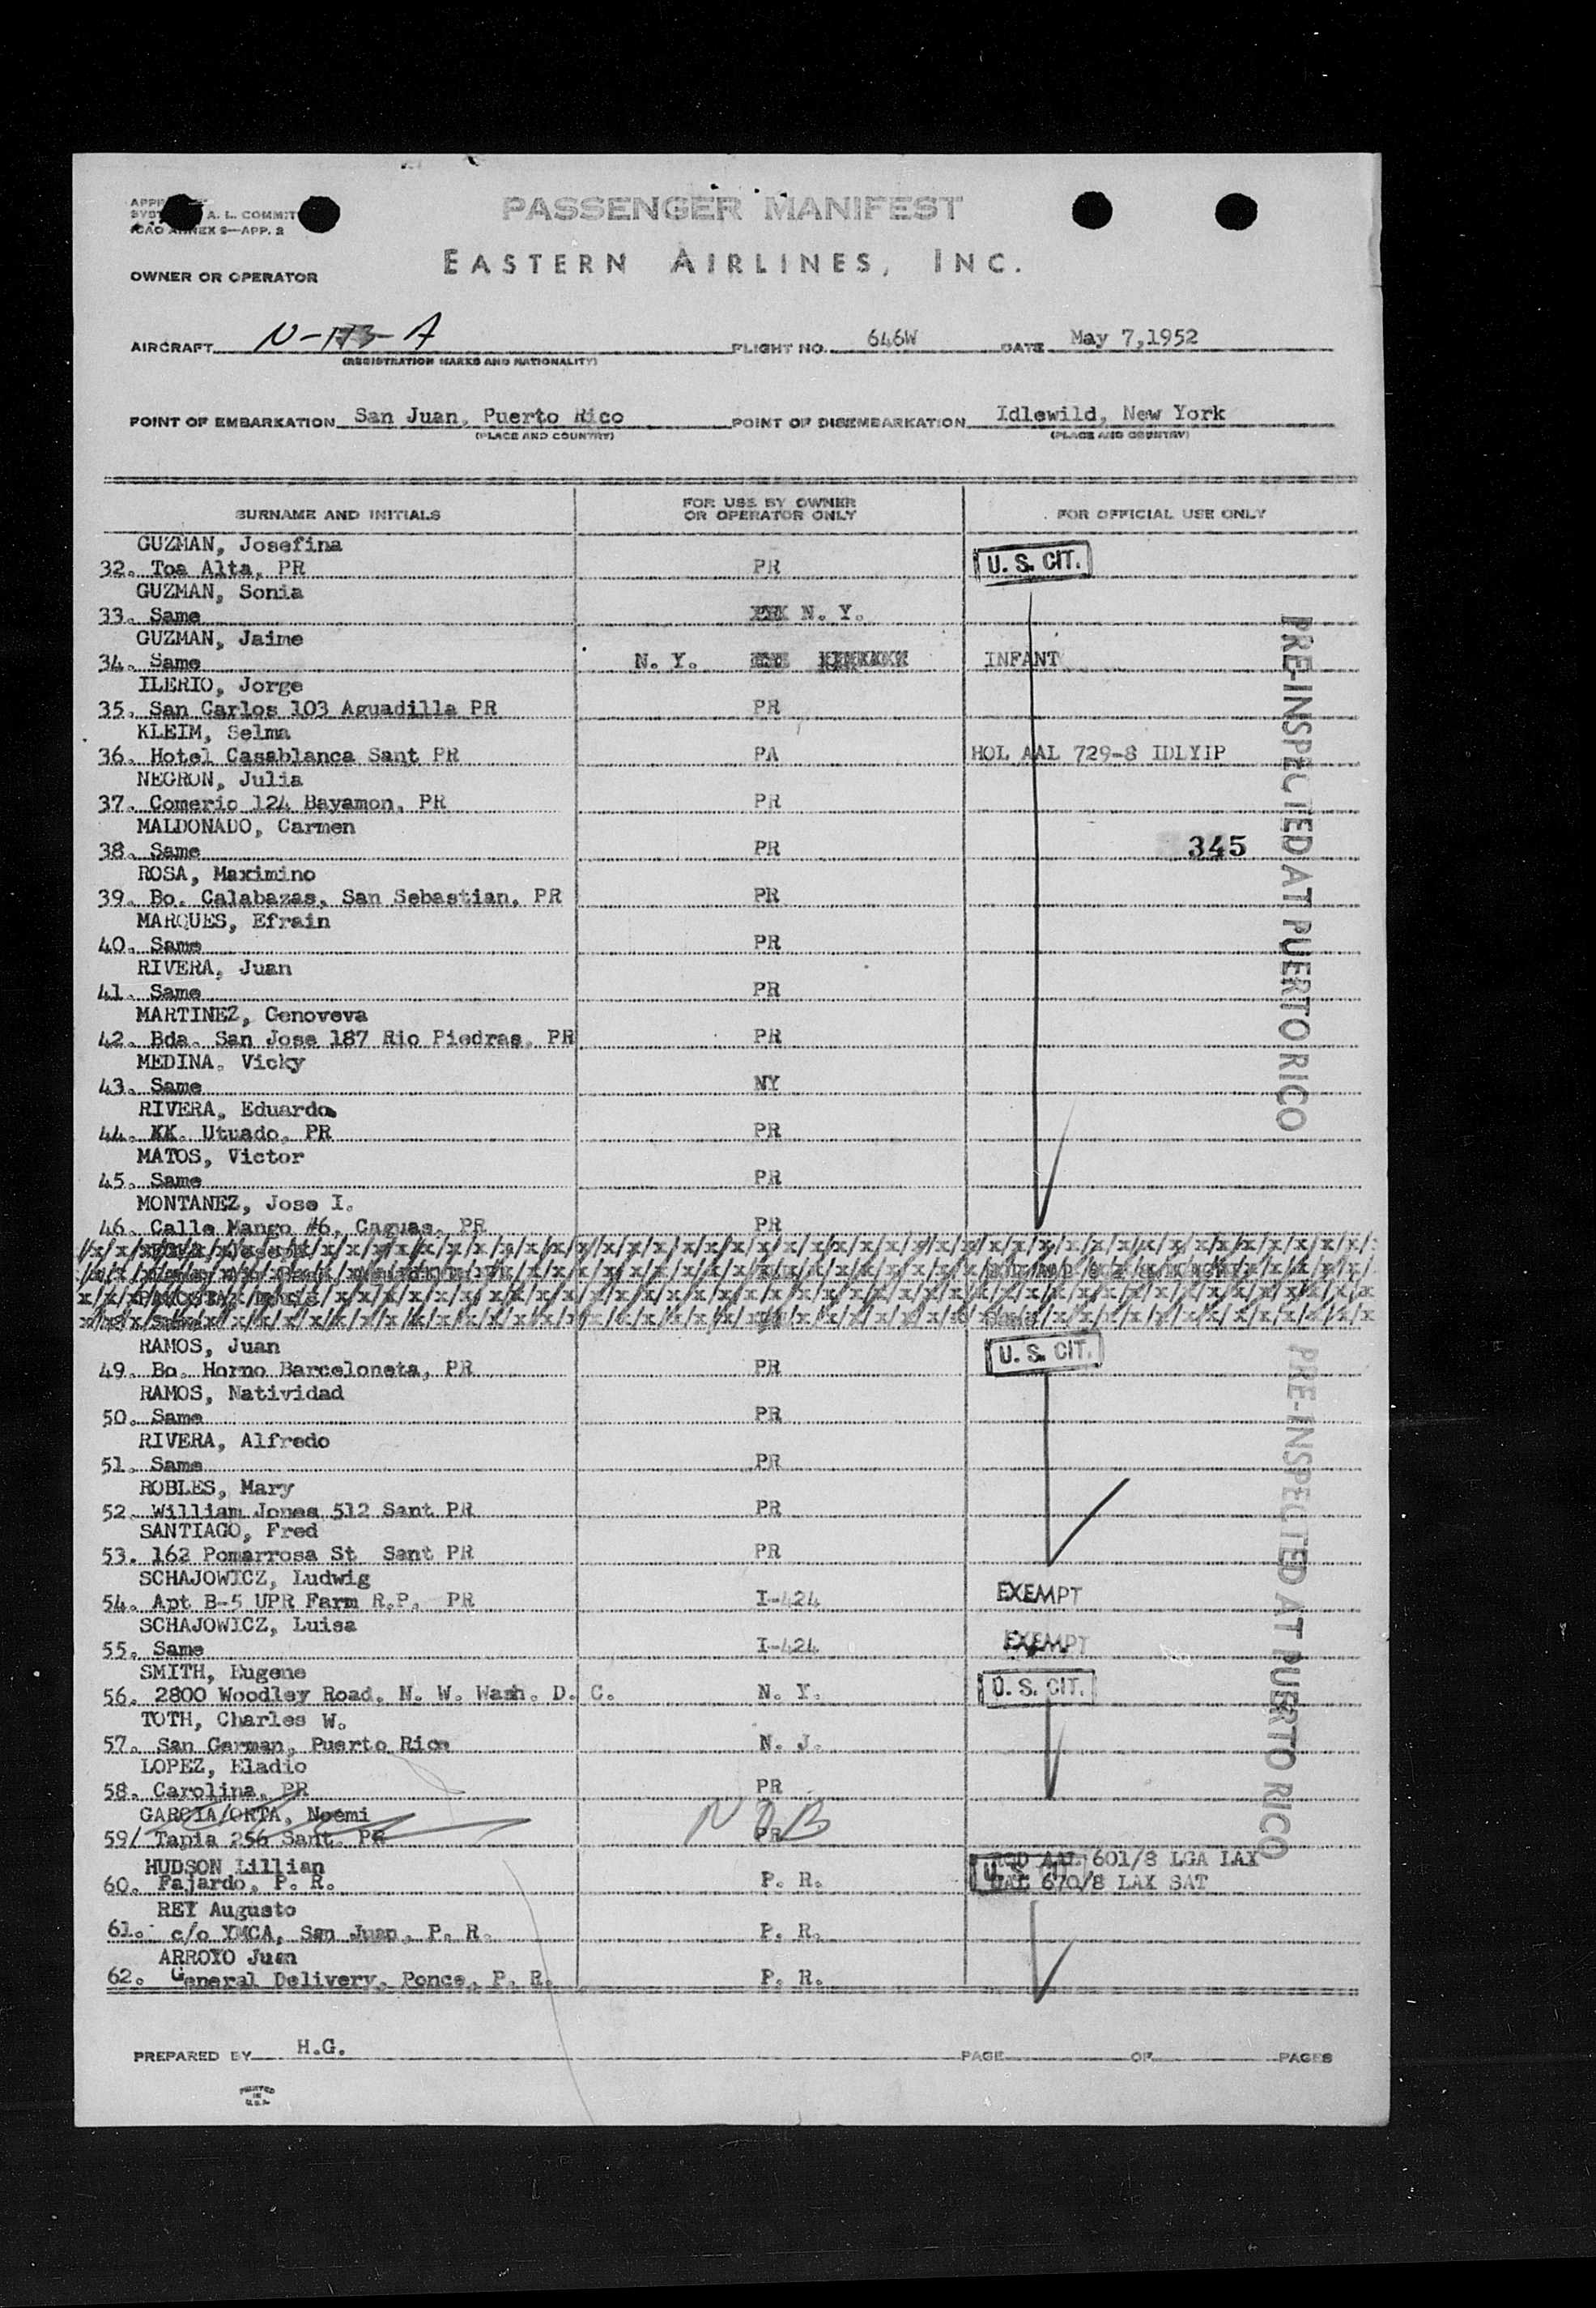 A. L. COMMIT
ICAO ANNEX 9—APP. 2
PASSENGER MANIFEST
EASTERN AIRLINES, INC.
OWNER OR OPERATOR
AIRCRAFT N-173-A FLIGHT NO. 646W DATE May 7,1952
(REGISTRATION MARKS AND NATIONALITY)
POINT OF EMBARKATION San Juan, Puerto Rico POINT OF DISEMBARKATION Idlewild, New York
(PLACE AND COUNTRY) (PLACE AND COUNTRY)
SURNAME AND INITIALS FOR USE BY OWNER OR OPERATOR ONLY FOR OFFICIAL USE ONLY
GUZMAN, Josefina
32. Toa Alta, PR PR U. S. CIT.
GUZMAN, Sonia
33. Same N. Y.
GUZMAN, Jaime
34. Same N. Y. INFANT
ILERIO, Jorge
35. San Carlos 103 Aguadilla PR PR
KLEIM, Selma
36. Hotel Casablanca Sant PR PA HOL AAL 729-8 IDLYIP
NEGRON, Julia
37. Comerio 124 Bayamon, PR PR
MALDONADO, Carmen
38. Same PR 345
ROSA, Maximino
39. Bo. Calabazas, San Sebastian, PR PR
MARQUES, Efrain
40. Same PR
RIVERA, Juan
41. Same PR
MARTINEZ, Genoveva
42. Bda. San Jose 187 Rio Piedras, PR PR
MEDINA, Vicky
43. Same NY
RIVERA, Eduardo
44. XX. Utuado, PR PR
MATOS, Victor
45. Same PR
MONTANEZ, Jose I.
46. Calle Mango #6, Caguas, PR PR
PRE-INSPECTED AT PUERTO RICO
RAMOS, Juan
49. Bo. Horno Barceloneta, PR PR U. S. CIT.
RAMOS, Natividad
50. Same PR
RIVERA, Alfredo
51. Same PR
ROBLES, Mary
52. William Jones 512 Sant PR PR
SANTIAGO, Fred
53. 162 Pomarrosa St Sant PR PR
SCHAJOWICZ, Ludwig
54. Apt B-5 UPR Farm R.P. PR I-424 EXEMPT
SCHAJOWICZ, Luisa
55. Same I-424 EXEMPT
SMITH, Eugene
56. 2800 Woodley Road, N. W. Wash. D. C. N. Y. U. S. CIT.
TOTH, Charles W.
57. San German, Puerto Rico N. J.
LOPEZ, Eladio
58. Carolina, PR PR
GARCIA/ORTA, Noemi
59/ Tapia 256 Sant. PR PR NOB
HUDSON Lillian AAL 601/8 LGA LAX
60. Fajardo, P. R. P. R. U. S. CIT. UAL 670/8 LAX SAT
REY Augusto
61. c/o YMCA, San Juan, P. R. P. R.
ARROYO Juan
62. General Delivery, Ponce, P. R. P. R.
PRE-INSPECTED AT PUERTO RICO
PREPARED BY H.G. PAGE OF PAGES
PRINTED
IN
U.S.A.